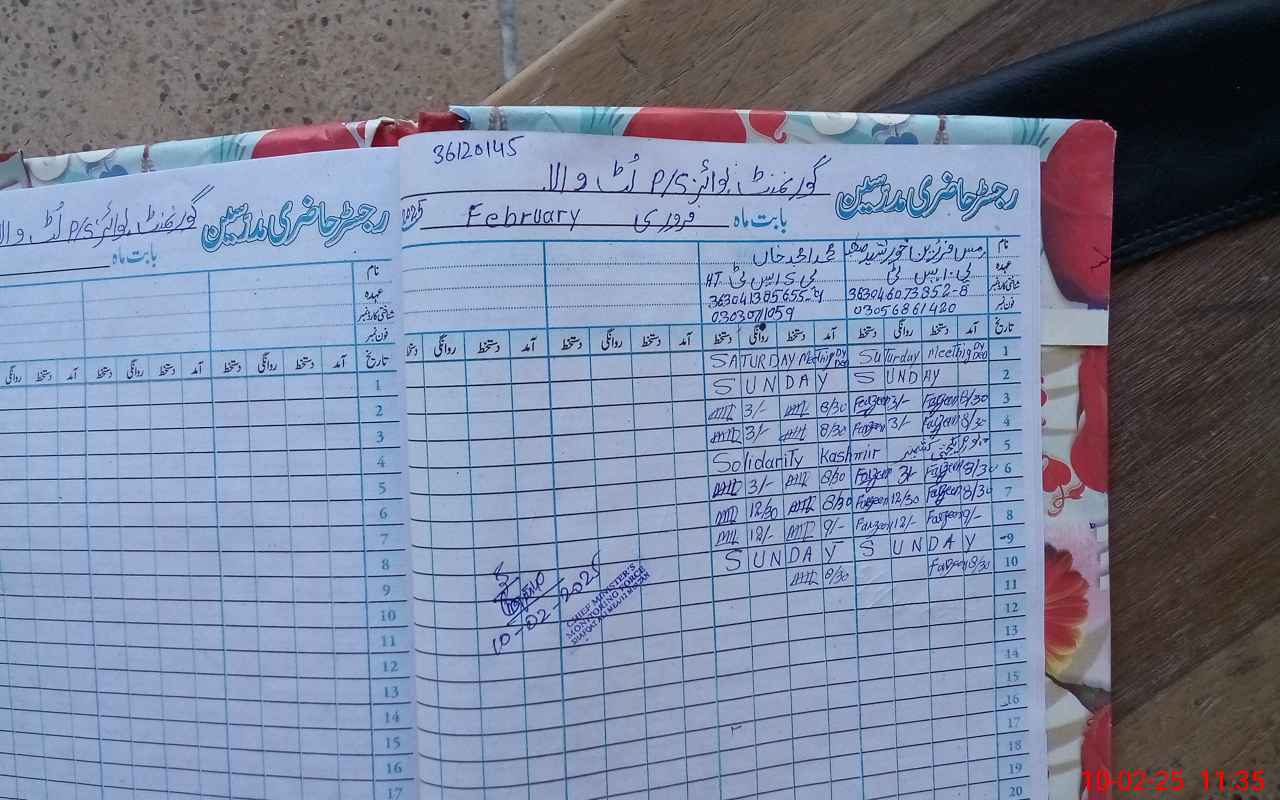 36120145
رجسٹر حاضری مدرسین گورنمنٹ بوائز P/S لٹ والا
بابت ماہ فروری February 2025
نام مس فرزین خورشید محمد احمد خاں
عہدہ پی ایس ٹی پی ایس ٹی HT
شناختی کارڈ نمبر 363046073352-8 363041385655-9
فون نمبر 03056861420
تاریخ آمد دستخط روانگی دستخط آمد دستخط روانگی دستخط آمد دستخط روانگی دستخط آمد دستخط روانگی دستخط
1 Saturday Meeting DY DEO SATURDAY Meeting DY DEO
2 SUNDAY SUNDAY
3 8/30 Farzeen 3/- Farzeen 8/30 3/-
4 8/30 Farzeen 3/- Farzeen 8/30 3/-
5 یوم یکجہتی کشمیر Solidarity Kashmir
6 8/30 Farzeen 3/- Farzeen 8/30 3/-
7 8/30 Farzeen 12/30 Farzeen 8/30 12/30
8 9/- Farzeen 12/- Farzeen 9/- 12/-
9 SUNDAY SUNDAY
10 8/30 Farzeen 8/30
11
12
13
14
15
16
17
18
19
20
10-02-2025
CHIEF MINISTER'S
MONITORING FORCE
رجسٹر حاضری مدرسین گورنمنٹ بوائز P/S لٹ والا
بابت ماہ
نام
عہدہ
شناختی کارڈ نمبر
فون نمبر
تاریخ آمد دستخط روانگی دستخط آمد دستخط روانگی دستخط آمد دستخط روانگی
1
2
3
4
5
6
7
8
9
10
11
12
13
14
15
16
17
10-02-25 11:35